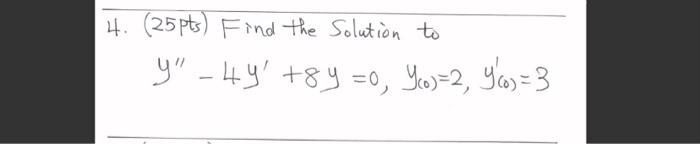 4. (25pts) Find the Solution to
y'' - 4y' + 8y = 0, y(0)=2, y'(0)=3